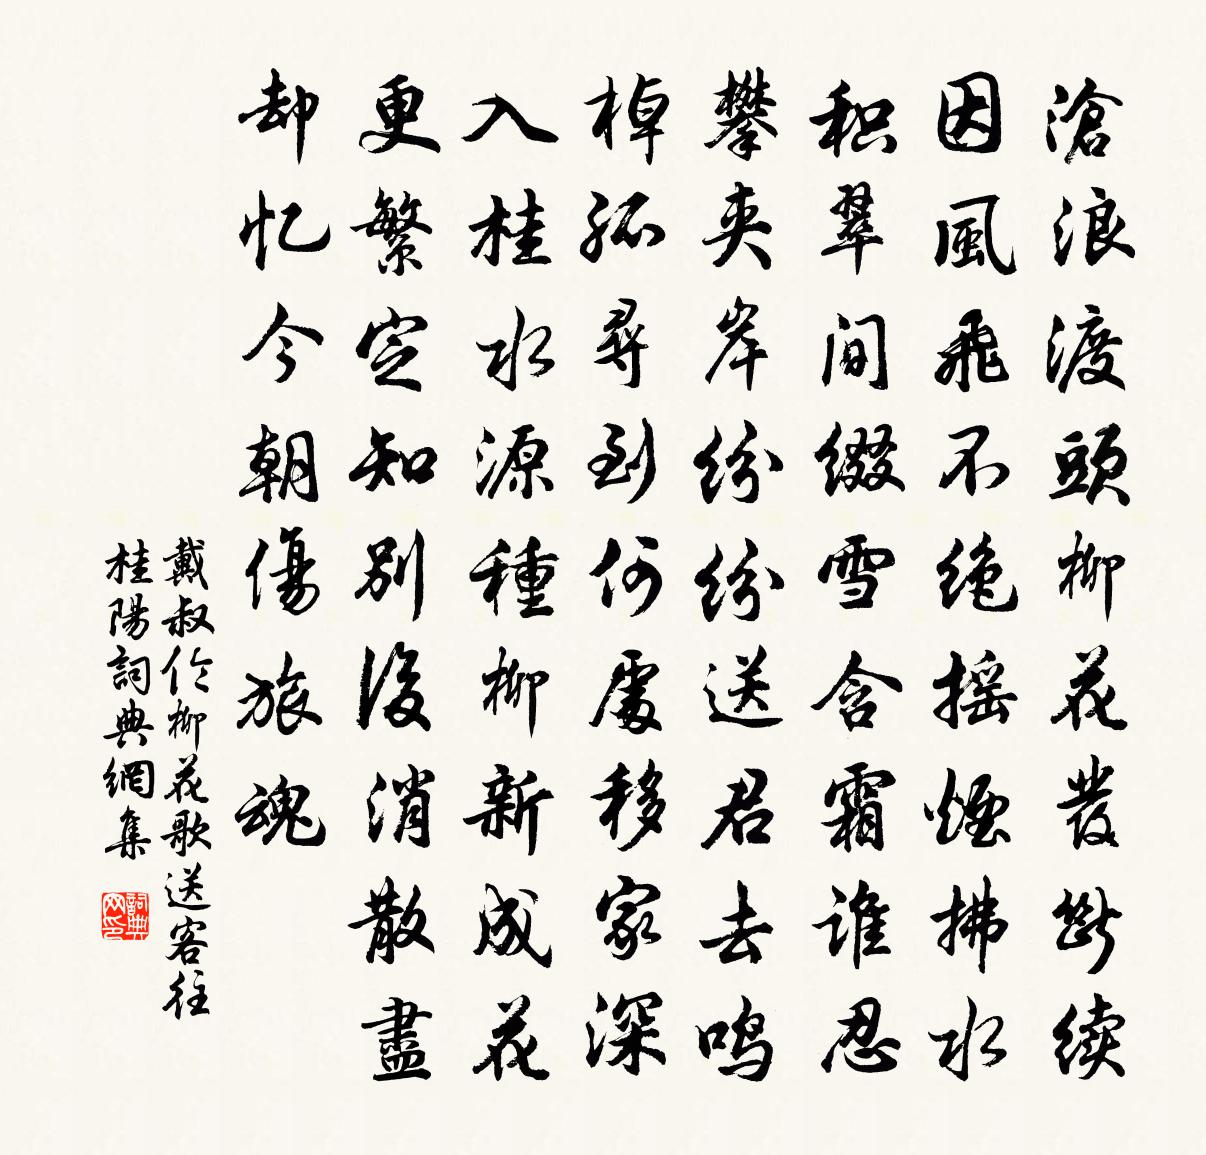 滄浪渡頭柳花發斷续
因風飛不绝摇煙拂水
积翠間缀雪含霜谁忍
攀夹岸纷纷送君去鸣
棹孤尋到何處移家深
入桂水源種柳新成花
更繁定知別後消散盡
却忆今朝傷旅魂
戴叔伦柳花歌送客往
桂陽詞典網集
詞典网印